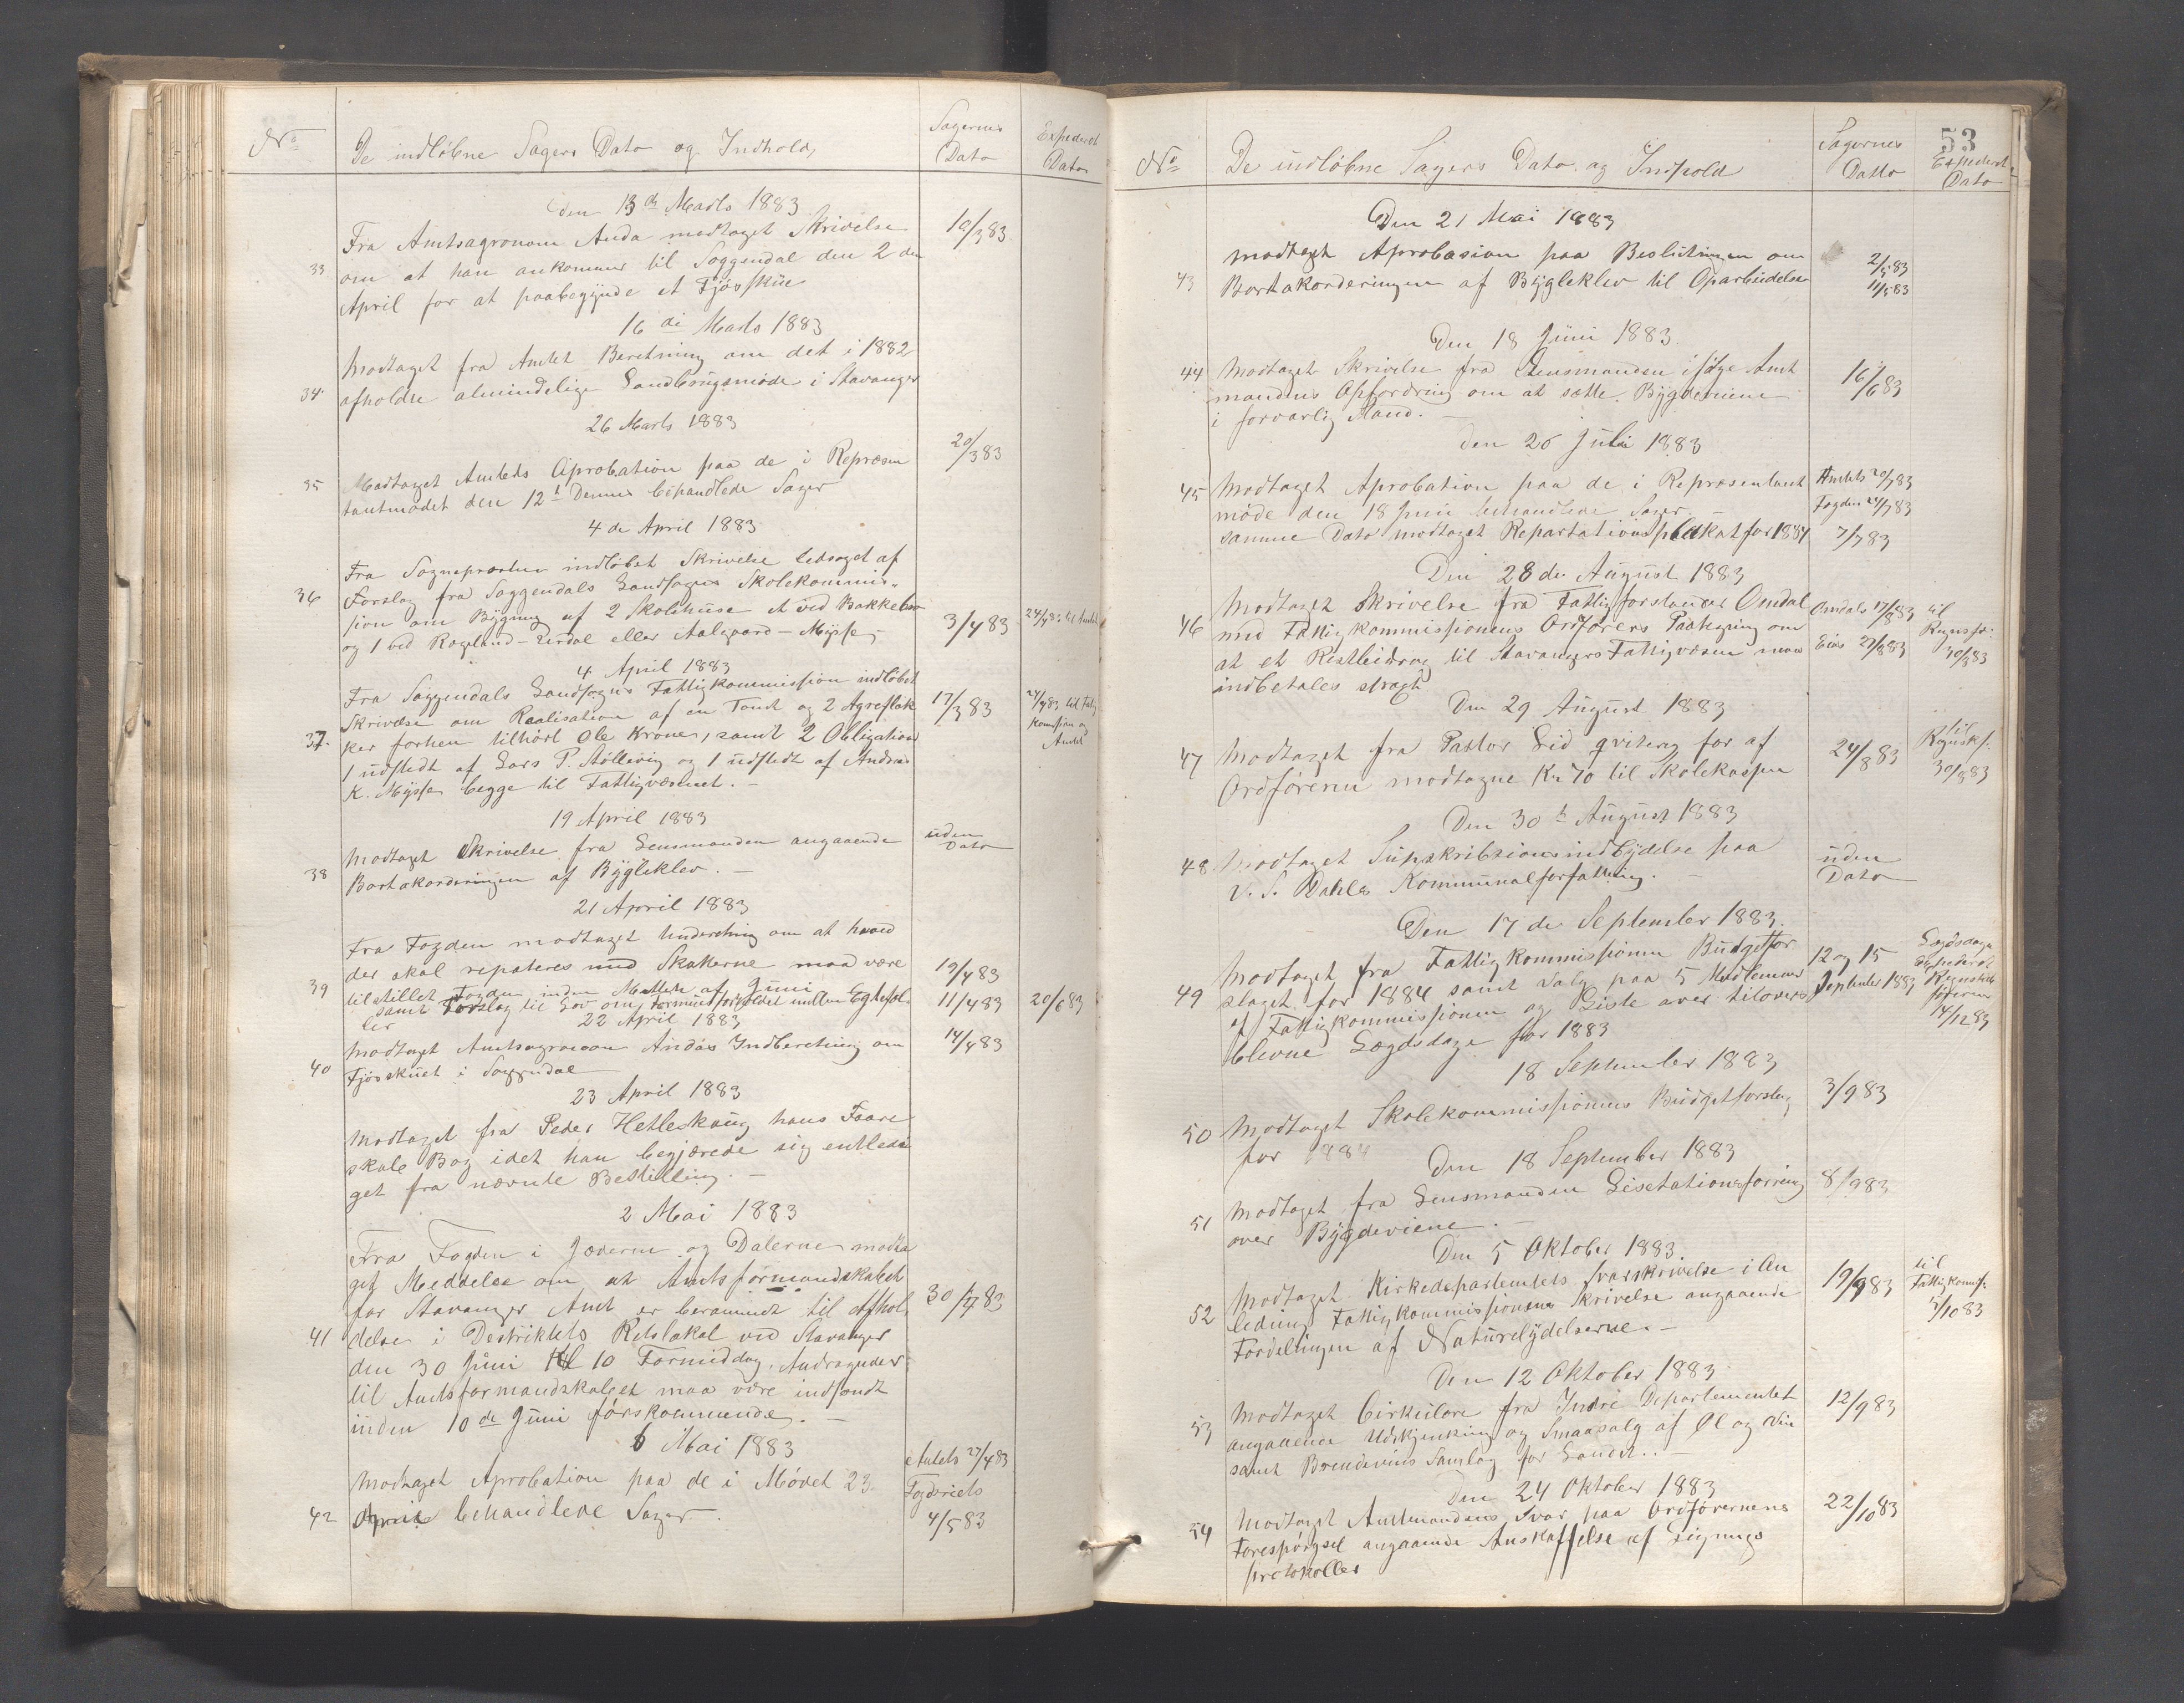 No
De indløbne Sagers Dato og Indhold,
Sagernes
Dato
Expederet
Dato
Den 13de Marts 1883
Fra Amtsagronom Anda modtaget Skrivelse
10/3 83
33
om at han ankommer til Soggendal den 2den
April for at paabegynde et Fjøsskue
16de Marts 1883
Modtaget fra Amtet Beretning om det i 1882
34
afholdte almindelige Landbrugsmøde i Stavanger
26 Marts 1883
20/3 83
35
Modtaget Amtets Aprobation paa de i Repræsen
tantmødet den 12te Dennes behandlede Sager
4de April 1883
Fra Sognepræsten indløbet Skrivelse ledsaget af
36
Forslag fra Soggendals Landsogns Skolekommis-
sion om Bygning af 2 Skolehuse et ved Bakke
og 1 ved Rogeland - Urdal eller Aalgaard - Mysse
3/4 83
24/4 83 til Amtet
4 April 1883
Fra Soggendals Landsogns Fattigkommission indløbet
Skrivelse om Realisation af en Tomt og 2 Agreflek
17/3 83
24/4 83 til Fatg
Komission og
Amtet
37.
ker forhen tilhørt Ole Krone, samt 2 Obligation
1 udstedt af Lars P. Støllevig og 1 udstedt af Andreas
K. Mysse begge til Fattigvæsenet. -
19 April 1883
Modtaget Skrivelse fra Lensmanden angaaende
uden
Dato
38
Bortakorderingen af Bygleklev. -
21 April 1883
Fra Fogden modtaget Underetning om at hvad
der skal repateres med Skakerne maa være
19/4 83
39
tilstillet Fogden inden Midten af Juni
samt Forslag til Lov om Formuesforholdet mellem Egtefol-
ler
11/4 83
20/6 83
22 April 1883
Modtaget Amtsagronom Andas Indberetning om
14/4 83
40
Fjøsskuet i Soggendal
23 April 1883
Modtaget fra Peder Hetleskaug hans Faare
skole Bog idet han begjærede sig entledi
get fra nævnte Bestilling. -
2 Mai 1883
Fra Fogden i Jæderen og Dalerne modta
get Meddelse om at Amtsformandskabet
for Stavanger Amt er berammet til Afhol
30/4 83
41
delse i Destriktets Retslokal ved Stavanger
den 30 Juni Kl 10 Formiddag. Andragender
til Amtsformandskabet maa være indsendt
inden 10de Juni førskommende. -
6 Mai 1883
Modtaget Aprobation paa de i Mødet 23
Amtets 27/4 83
Fogderiets
4/5 83
42
April behandlede Sager.
53
No
De indløbne Sagers Dato og Indhold
Sagernes
Datto
Expederet
Dato
Den 21 Mai 1883
modtaget Aprobasion paa Beslutningen om
2/5 83
43
Bortakorderingen af Bygleklev til Oparbeidelse
11/5 83
Den 18 Juni 1883.
44
Modtaget Skrivelse fra Lensmanden ifølge Amt
mandens Opfordring om at sætte Bygdeveiene
16/6 83
i forsvarlig Stand. -
den 26 Juli 1883
45
Modtaget Aprobation paa de i Repræsentant
Amtets 20/7 83
møde den 18 Juni behandlede Sager. -
Fogden 24/7 83
samme Dato modtaget Repartationsplakat for 1884
7/7 83
Den 28de August 1883
Modtaget Skrivelse fra Fattigforstander Omdal
Omdals 17/8 83
til
46
med Fattigkommissionens Ordførers Paategning om
Regnsf.
at et Restbidrag til Stavangers Fattigvæsen maa
Eies 27/8 83
30/8 83
indbetales strags
Den 29 August 1883
47
Modtaget fra Pastor Eid qvitering for af
24/8 83
til
Regnskf.
Ordføreren modtagne Kr 70 til Skolekassen
30/8 83
Den 30te August 1883
48
Modtaget Supskribsionsindbydelse paa
uden
Dato
V. S. Dahls Kommunalforfatning. -
Den 17de September 1883.
Modtaget fra Fattigkommissionen Budgetfor
12 og 15
Lægdsdage
Expederet
49
slaget for 1884 samt Valg paa 5 Medlemmer
September 1883
Regnskabs
føreren
af Fattigkommissionen og Liste over tilovers
14/12 83
blevne Lægdsdage for 1883
18 September 1883
50
Modtaget Skolekommissionens Budgetforslag
3/9 83
for 1884
Den 18 September 1883
51
Modtaget fra Lensmanden Lisetationsforretning
8/9 83
over Bygdeveiene. -
Den 5 Oktober 1883.
Modtaget Kirkedepartemtets Svarskrivelse i An
19/9 83
til
Fattigkomis.
52
ledning Fattigkommissionens Skrivelse angaaende
5/10 83
Fordelingen af Naturelydelserne. -
Den 12 Oktober 1883
Modtaget Cirkulære fra Indre Departementet
12/9 83
53
angaaende Udskjenkning og Smaasalg af Øl og Vin
samt Brendevins Samlag for Landet.. -
Den 24 Oktober 1883
54
Modtaget Amtmandens Svar paa Ordførerens
22/10 83
Forespørgsel angaaende Anskaffelse af Lignings
protokoller